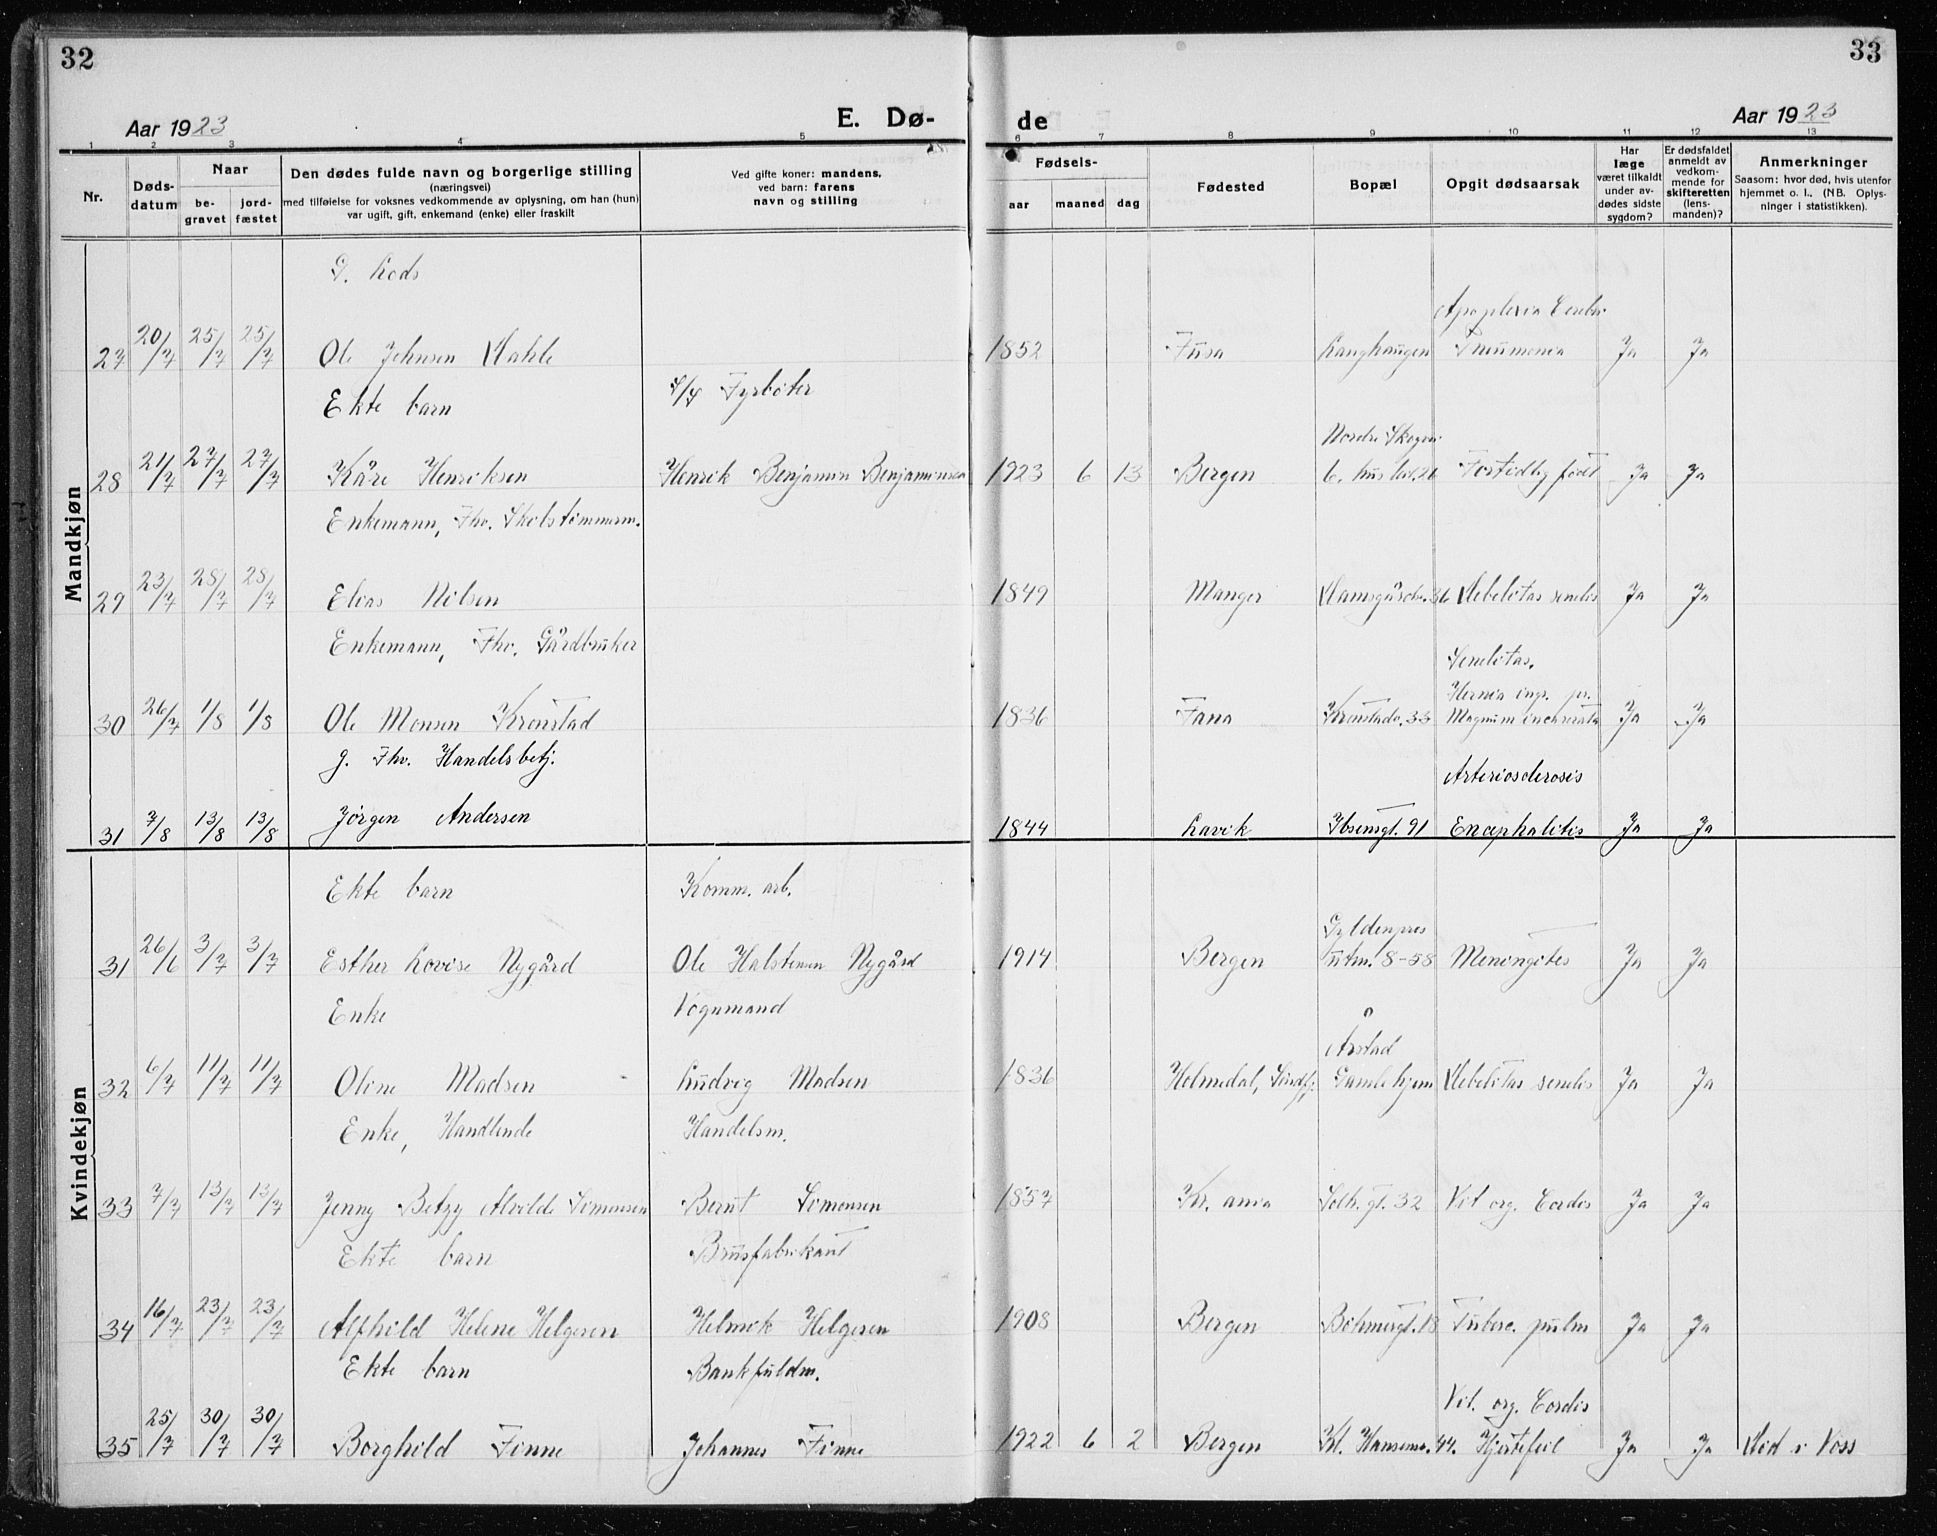 32
33
Aar 1923
E. Dø-
de
Aar 1923
1 2 3 4 5 6 7 8 9 10 11 12 13
Nr.
Døds-
datum
Naar
be-
gravet
jord-
fæstet
Den dødes fulde navn og borgerlige stilling
(næringsvei)
med tilføielse for voksnes vedkommende av oplysning, om han (hun)
var ugift, gift, enkemand (enke) eller fraskilt
Ved gifte koner: mandens,
ved barn: farens
navn og stilling
Fødsels-
aar maaned dag
Fødested
Bopæl
Opgit dødsaarsak
Har
læge
været tilkaldt
under av-
dødes sidste
sygdom?
Er dødsfaldet
anmeldt av
vedkom-
mende for
skifteretten
(lens-
manden)?
Anmerkninger
Saasom: hvor død, hvis utenfor
hjemmet o. l., (NB. Oplys-
ninger i statistikken).
Mandkjøn
G. Lods
Apoplexia Cerebr.
27 20/7 25/7 25/7 Ole Johnsen Dahle 1852 Fusa Langhaugen Pneumonia Ja Ja
Ekte barn Fyrbøter
Nordre Skogv.
28 21/7 27/7 27/7 Kåre Henriksen Henrik Benjamin Benjaminsen 1923 6 13 Bergen 6. hus Fortidlig født Ja Ja
Enkemann, Fhv. Skolstømmerm.
29 23/7 28/7 28/7 Elias Nilsen 1849 Manger Damsgårdv. 36 Debelitas senelis Ja Ja
Enkemann, Fhv. Gårdbruker
Senelitas.
Hernia ing. pr.
30 26/7 1/8 1/8 Ole Monsen Kronstad 1836 Fana Kronstadv. 33 Magnum incarerata Ja Ja
g. Fhv. Handelsbetj.
Arteriosclerosis
31 7/8 13/8 13/8 Jörgen Andersen 1844 Lavik Ibsensgt. 91 Encephalitis Ja Ja
Kvindekjøn
Ekte barn Komm. arb.
Gyldenpres
31 26/6 3/7 3/7 Esther Lovise Nygård Ole Halstensen Nygård 1914 Bergen 8-58 Meningites Ja Ja
Enke Vognmand
Årstad
32 6/7 11/7 11/7 Oline Madsen Ludvig Madsen 1836 Holmedal, Söndfj. Gamlehjem Debelitas senelis Ja Ja
Enke, Handlende Handelsm.
33 7/7 13/7 13/7 Jenny Betzy Alvilde Simonsen Bernt Simonsen 1857 Kr. ania Solh. gt. 32 Vit org. Cordis Ja Ja
Ekte barn Brusfabrikant
34 16/7 23/7 23/7 Alfhild Helene Helgesen Helmik Helgesen 1908 Bergen Böhmergt. 18 Tuberc. pulm Ja Ja
Ekte barn Bankfuldm.
Vit. org. Cordis
35 25/7 30/7 30/7 Borghild Finne Johannes Finne 1922 6 2 Bergen Kl. Hansensv. 44. Hjertefeil Ja Ja Död i Voss